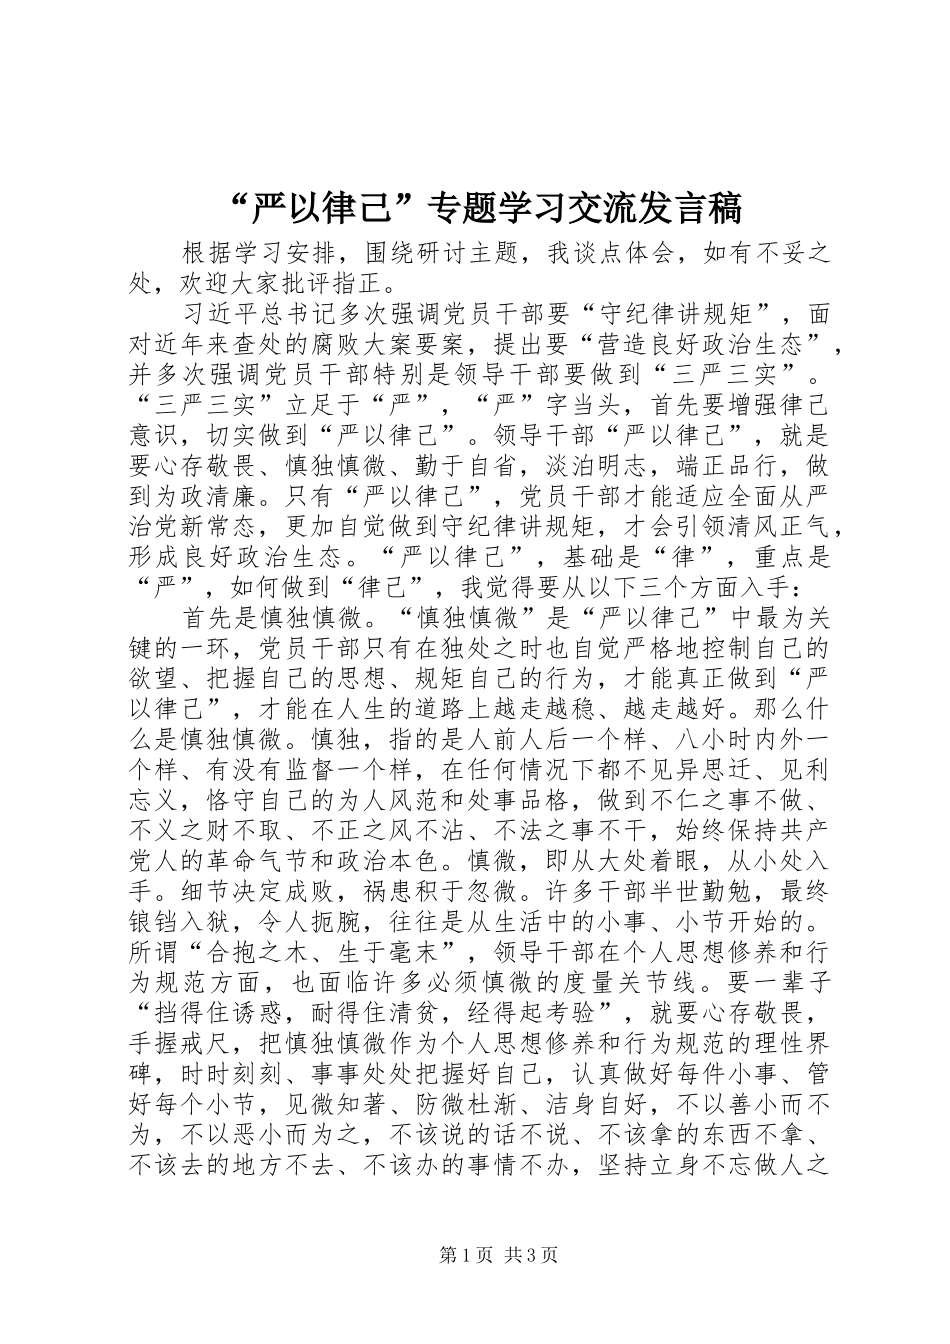 “严以律己”专题学习交流发言稿
根据学习安排，围绕研讨主题，我谈点体会，如有不妥之
处，欢迎大家批评指正。
习近平总书记多次强调党员干部要“守纪律讲规矩”，面
对近年来查处的腐败大案要案，提出要“营造良好政治生态”，
并多次强调党员干部特别是领导干部要做到“三严三实”。
“三严三实”立足于“严”，“严”字当头，首先要增强律己
意识，切实做到“严以律己”。领导干部“严以律己”，就是
要心存敬畏、慎独慎微、勤于自省，淡泊明志，端正品行，做
到为政清廉。只有“严以律己”，党员干部才能适应全面从严
治党新常态，更加自觉做到守纪律讲规矩，才会引领清风正气，
形成良好政治生态。“严以律己”，基础是“律”，重点是
“严”，如何做到“律己”，我觉得要从以下三个方面入手：
首先是慎独慎微。“慎独慎微”是“严以律己”中最为关
键的一环，党员干部只有在独处之时也自觉严格地控制自己的
欲望、把握自己的思想、规矩自己的行为，才能真正做到“严
以律己”，才能在人生的道路上越走越稳、越走越好。那么什
么是慎独慎微。慎独，指的是人前人后一个样、八小时内外一
个样、有没有监督一个样，在任何情况下都不见异思迁、见利
忘义，恪守自己的为人风范和处事品格，做到不仁之事不做、
不义之财不取、不正之风不沾、不法之事不干，始终保持共产
党人的革命气节和政治本色。慎微，即从大处着眼，从小处入
手。细节决定成败，祸患积于忽微。许多干部半世勤勉，最终
锒铛入狱，令人扼腕，往往是从生活中的小事、小节开始的。
所谓“合抱之木、生于毫末”，领导干部在个人思想修养和行
为规范方面，也面临许多必须慎微的度量关节线。要一辈子
“挡得住诱惑，耐得住清贫，经得起考验”，就要心存敬畏，
手握戒尺，把慎独慎微作为个人思想修养和行为规范的理性界
碑，时时刻刻、事事处处把握好自己，认真做好每件小事、管
好每个小节，见微知著、防微杜渐、洁身自好，不以善小而不
为，不以恶小而为之，不该说的话不说、不该拿的东西不拿、
不该去的地方不去、不该办的事情不办，坚持立身不忘做人之
第1页 共3页